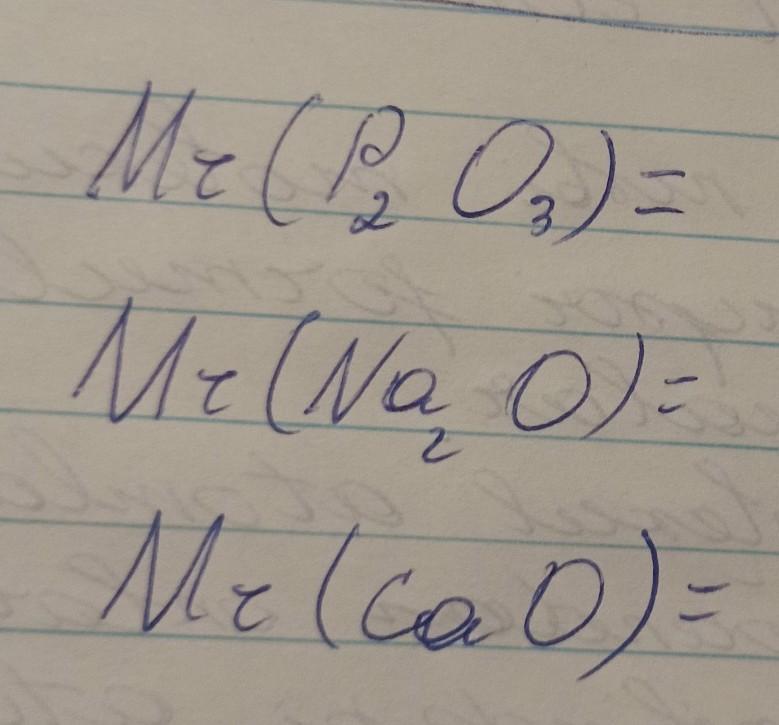 Mr(P₂O₃)=
Mr(Na₂O)=
Mr(CaO)=